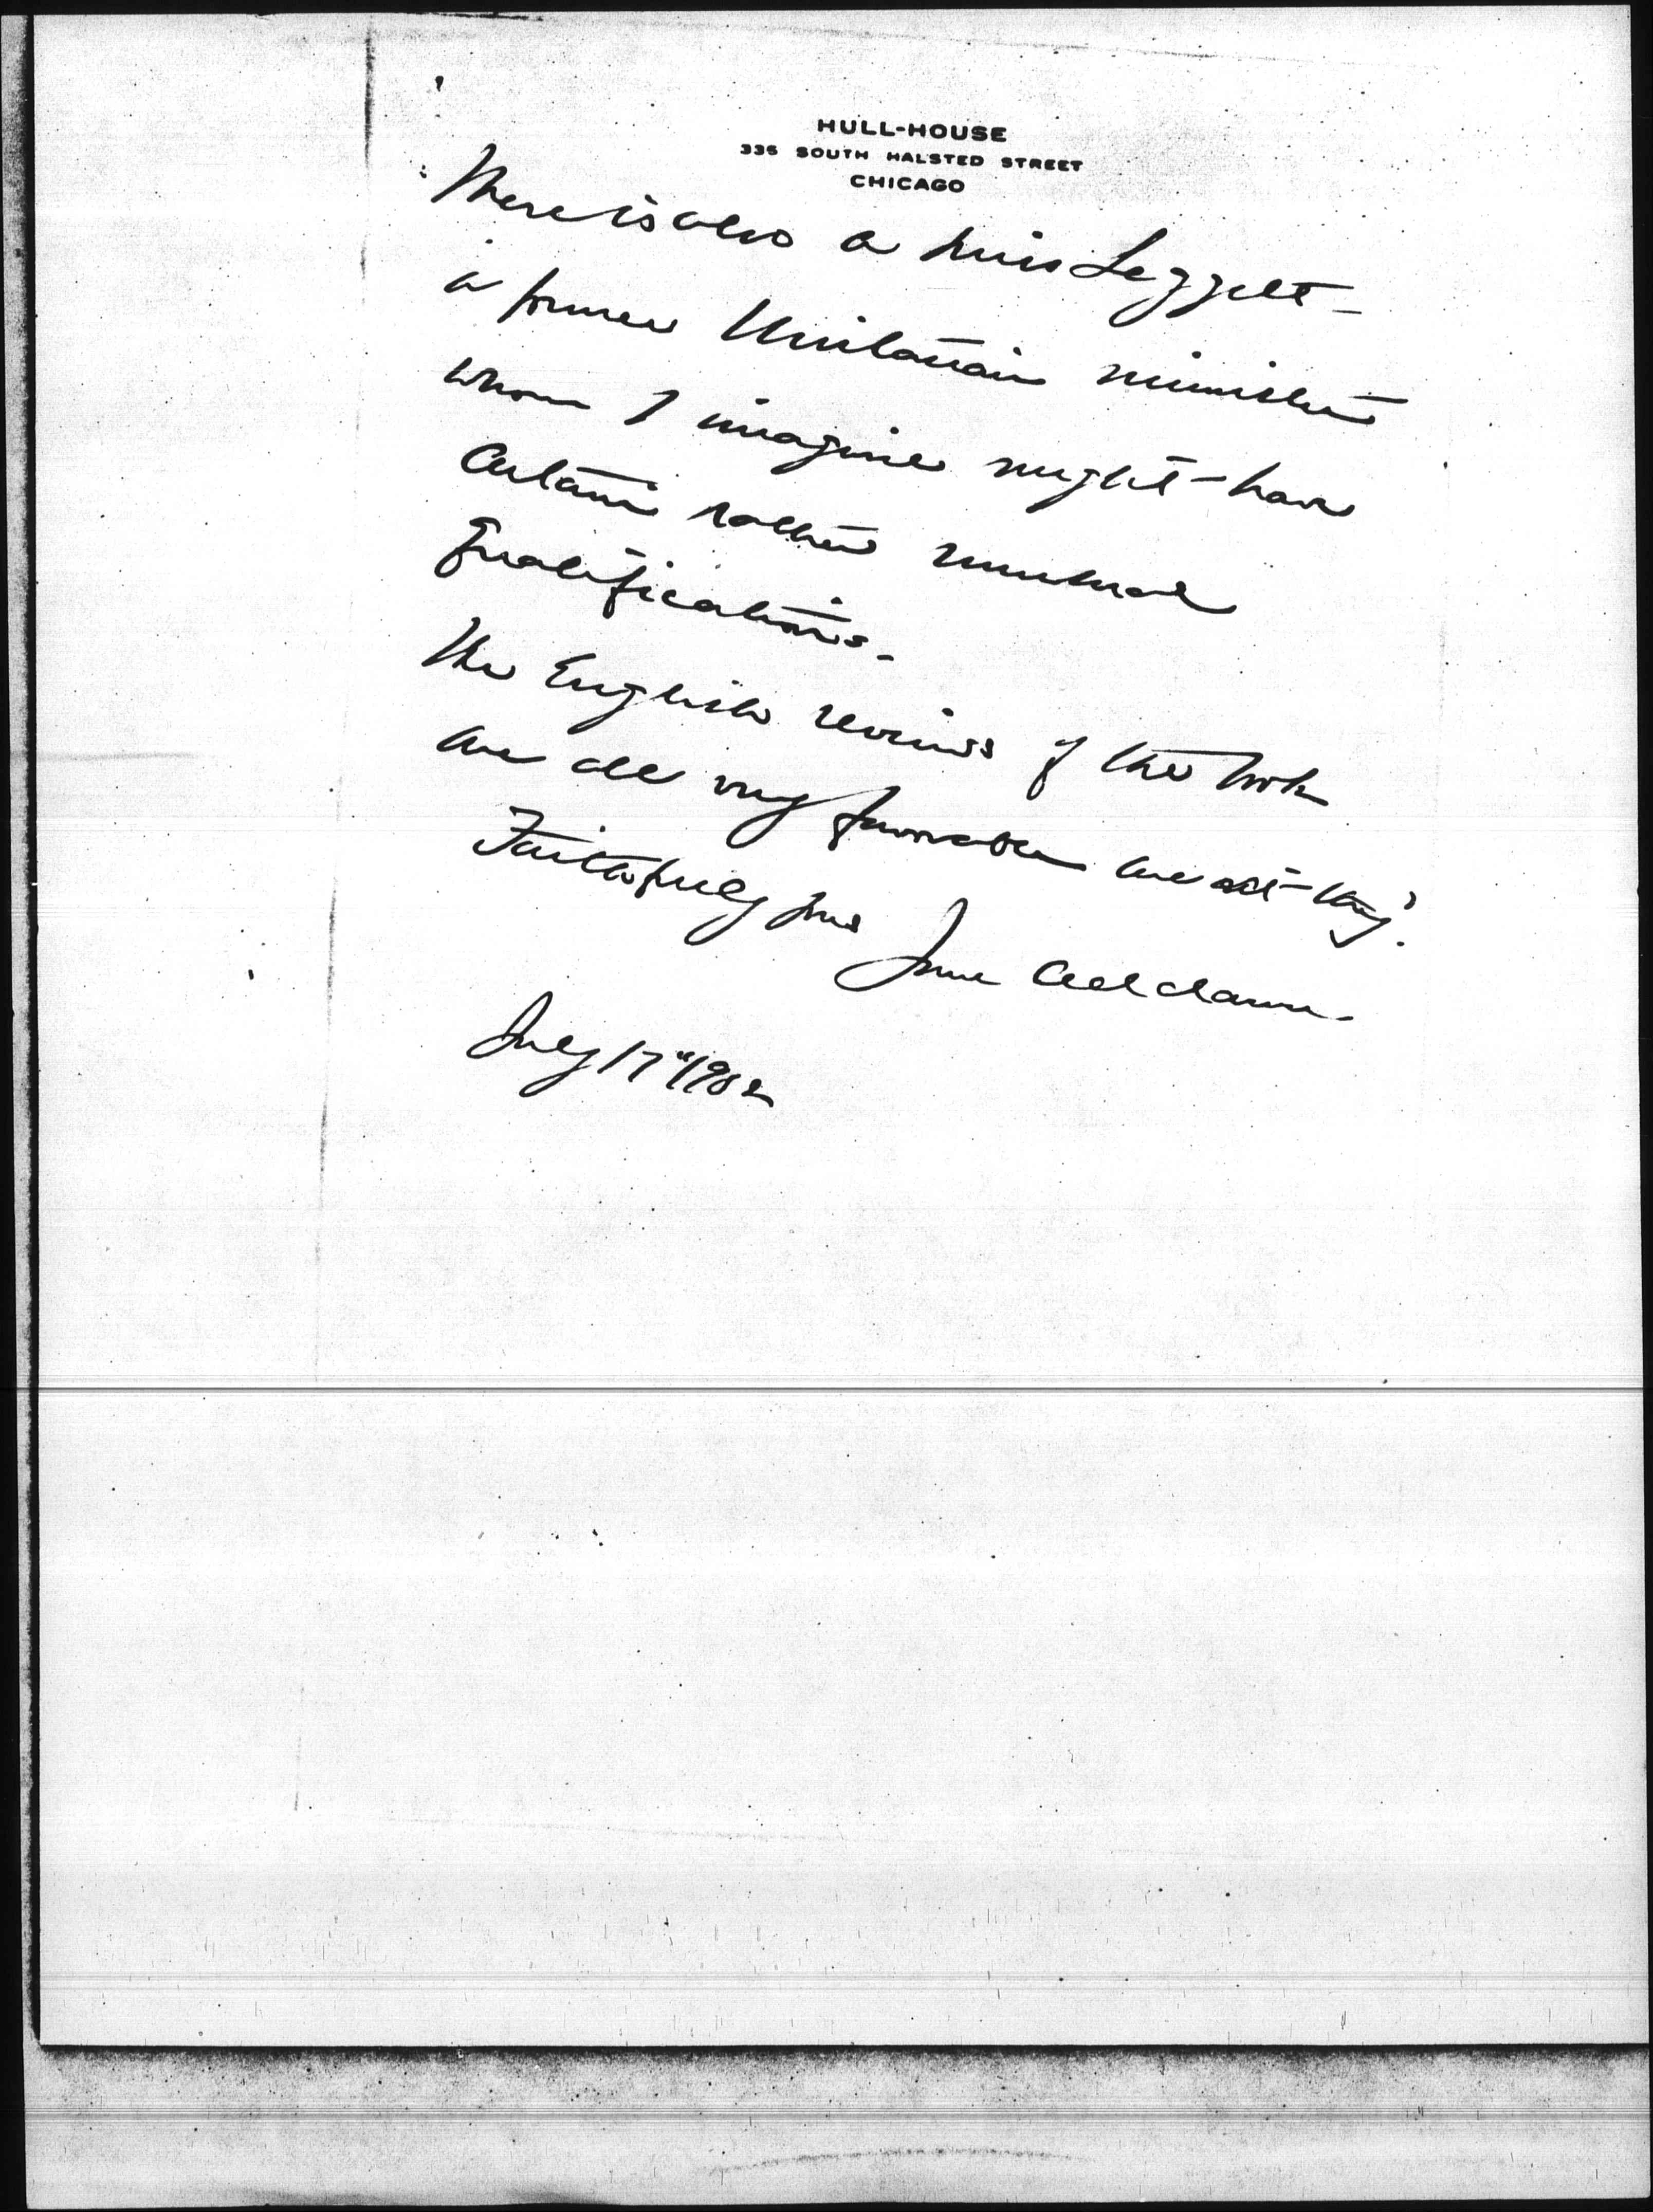 HULL-HOUSE
335 SOUTH HALSTED STREET
CHICAGO
There is also a Miss Leggett —
a former Unitarian minister
whom I imagine might have
certain rather unusual
qualifications.
The English reviews of the book
are all very favorable are not they?
Faithfully yours Jane Addams.
July 17" 1902